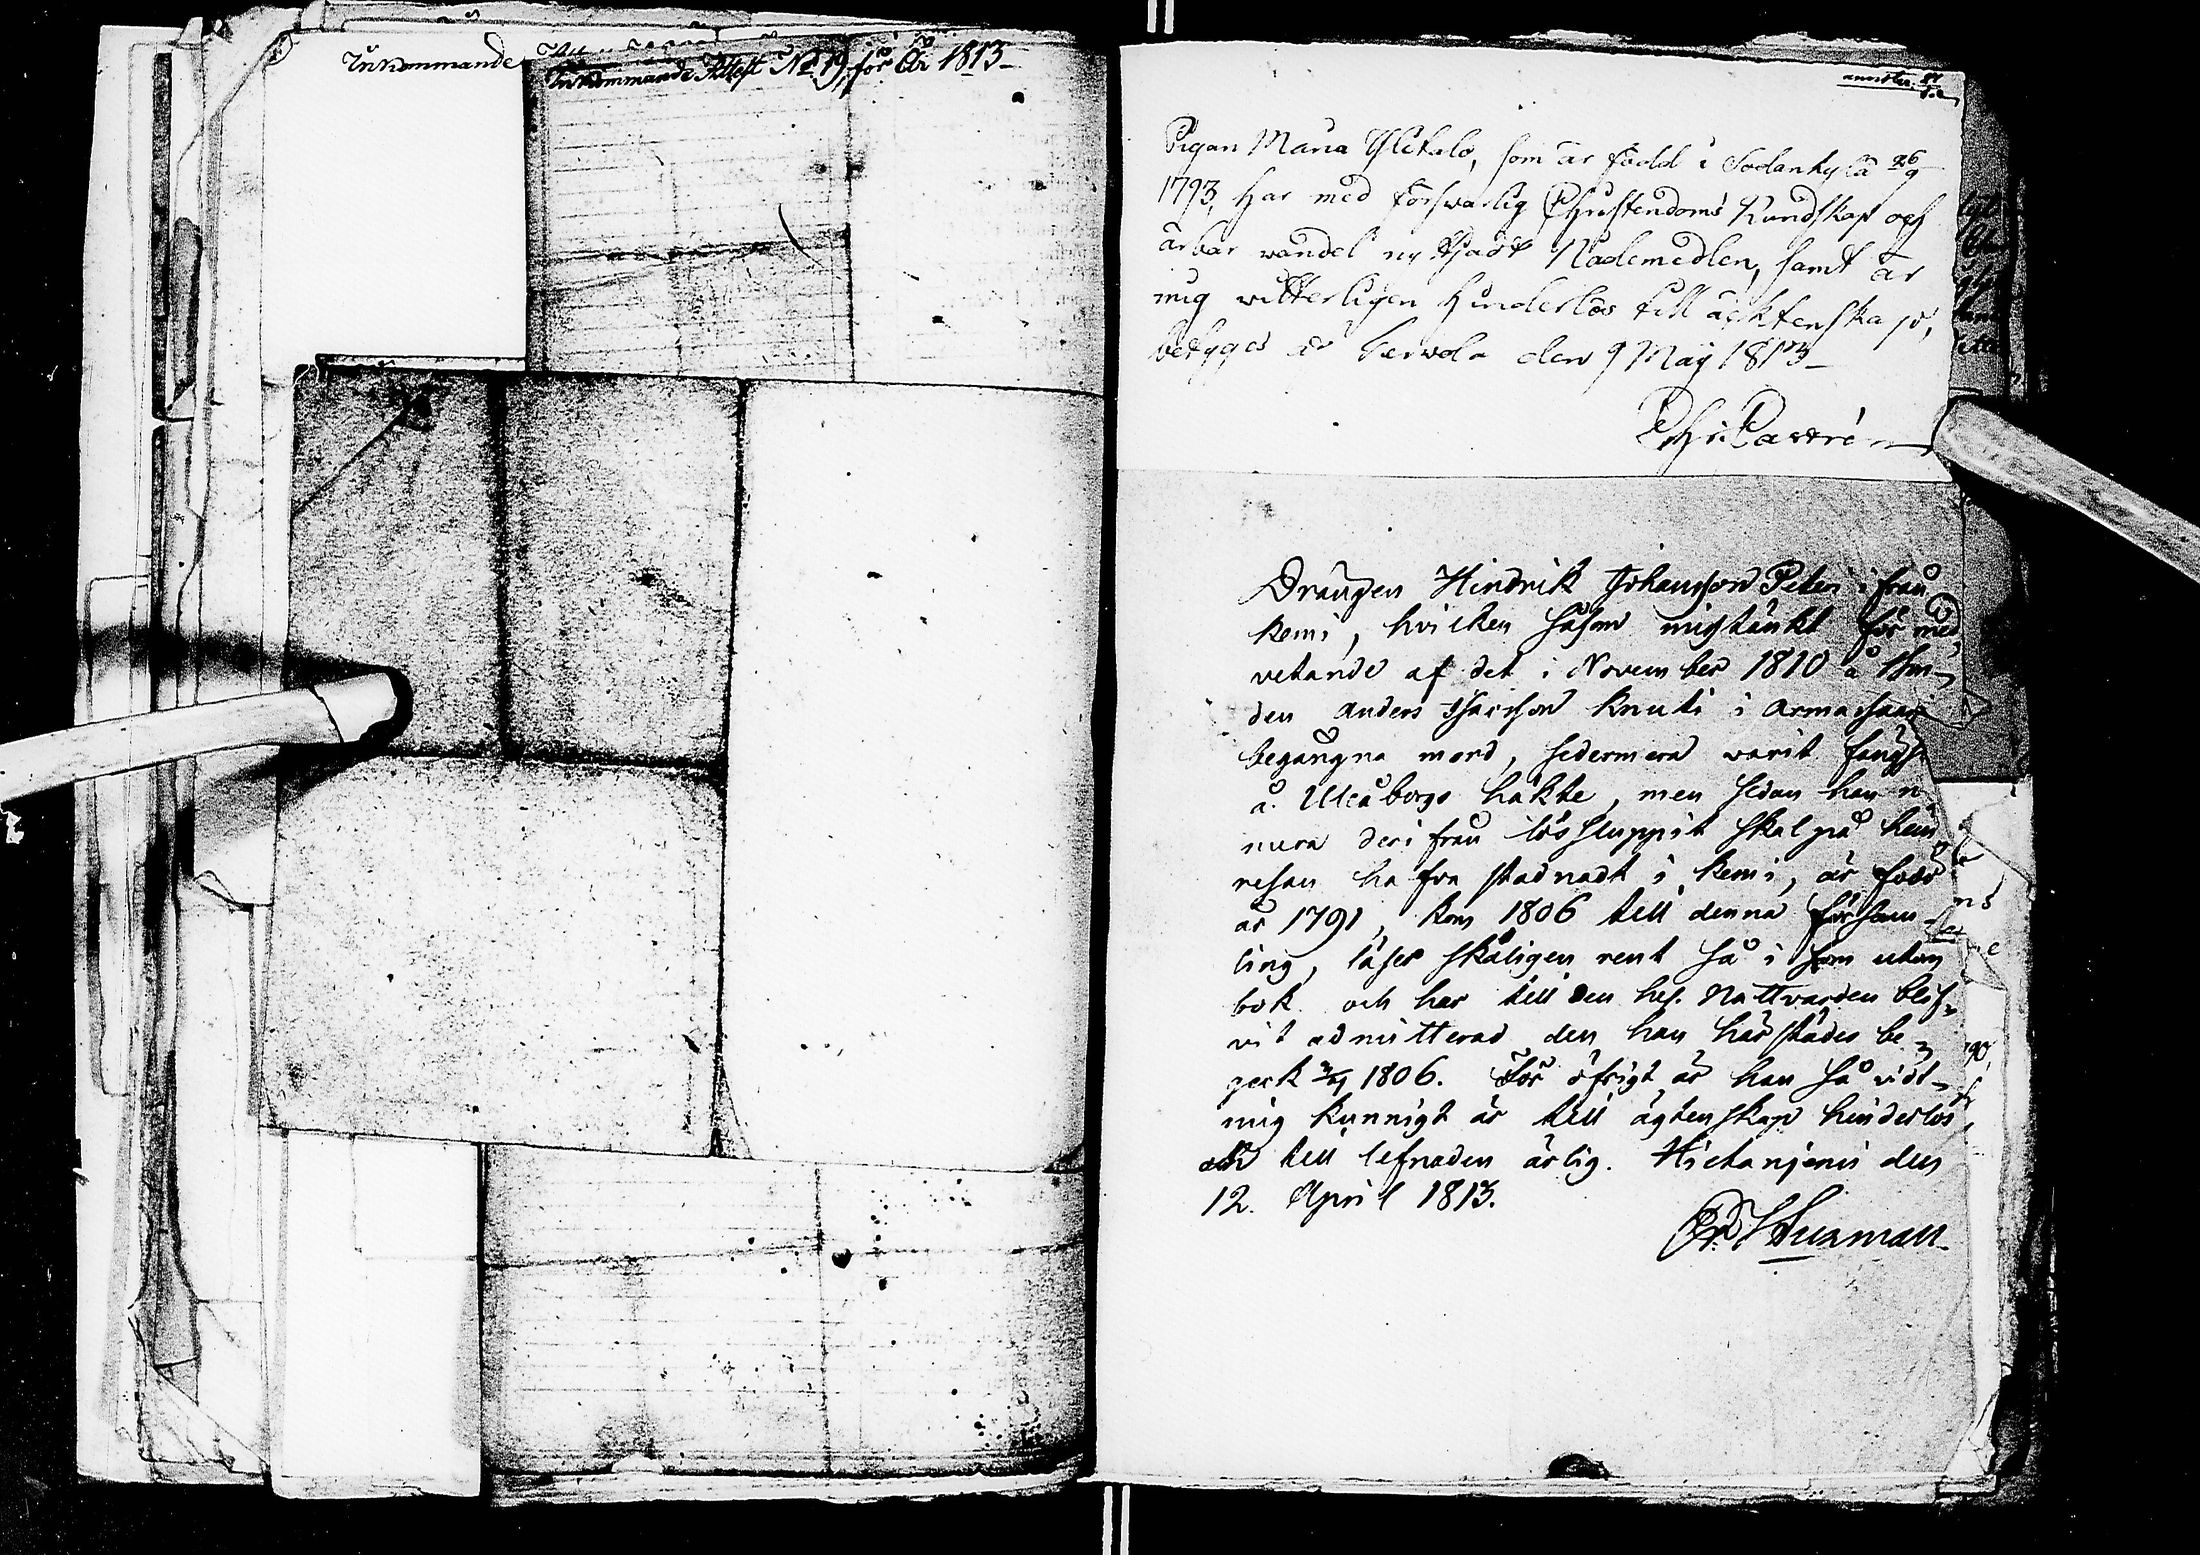 Inkommande
Inkommande Attest No 19, för År 1813
Pigan Maria Ylitalo, som är född i Sodankylä 26/9
1793, har med försvarlig Christendoms Kundskap och
ärbar wandel nyttjadt Nådemedlen, samt är
mig witterligen hinderlös till ächtenskap,
betyges af Terwola den 9 Maij 1813
Drängen Hindrik Johansson Peteri ifrån
Kemi, hvilken såsom misstänkt för med
vetande af det i November 1810 å Bon-
den Anders Knuti i
begångna mord, sedermera warit fängs-
å Uleåborgs häkte, men sedan han n
mera derifrån lössluppit skal på hem
resan hafva stadnadt i Kemi, är född
år 1791, kom 1806 till denna Försam-
ling, läser skäligen rent så i som utan
bok och har till den hel. Nattvarden blif-
vit admitterad, den han härstädes be-
geck 1806. För öfrigt är han så vidt
mig kunnigt är till ägtenskap hinderlös,
och till lefnaden ärlig. Hietaniemi den
12. April 1813.